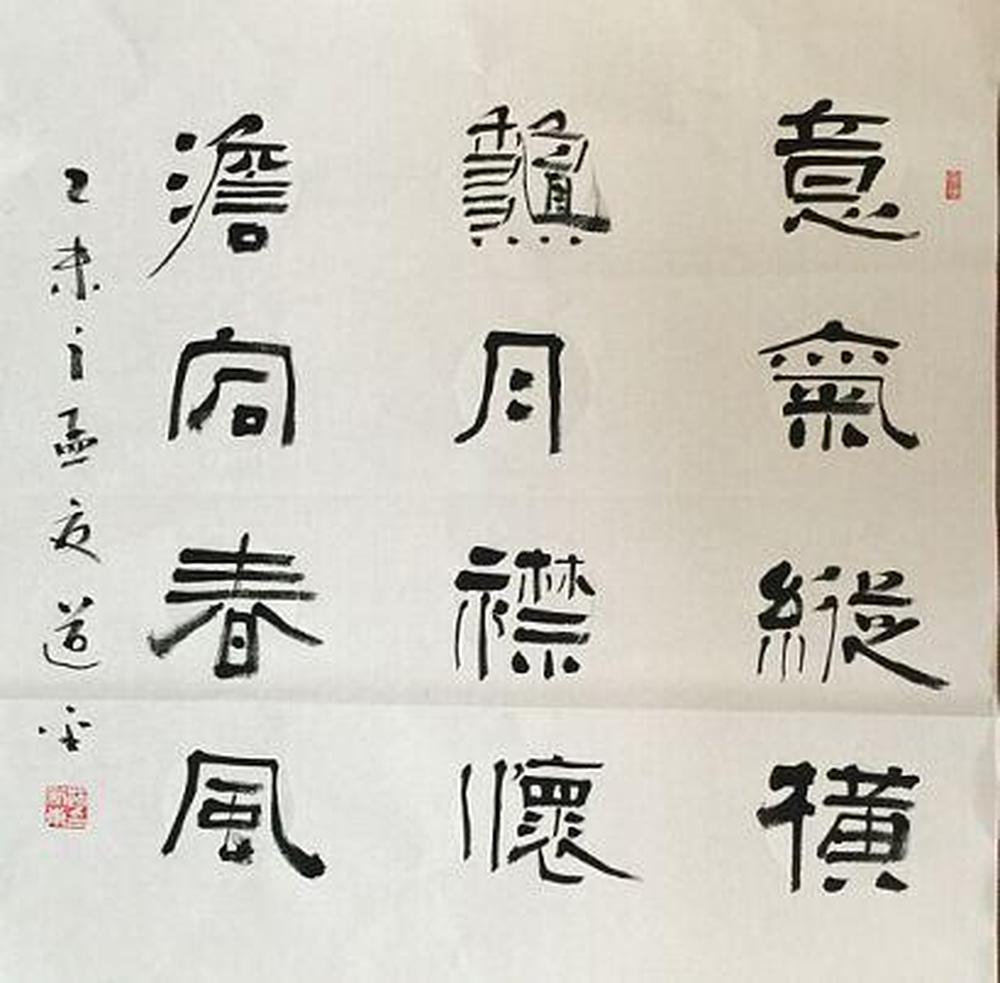 意氣縱橫
月襟懷
澹宕春風
乙未之孟夏道